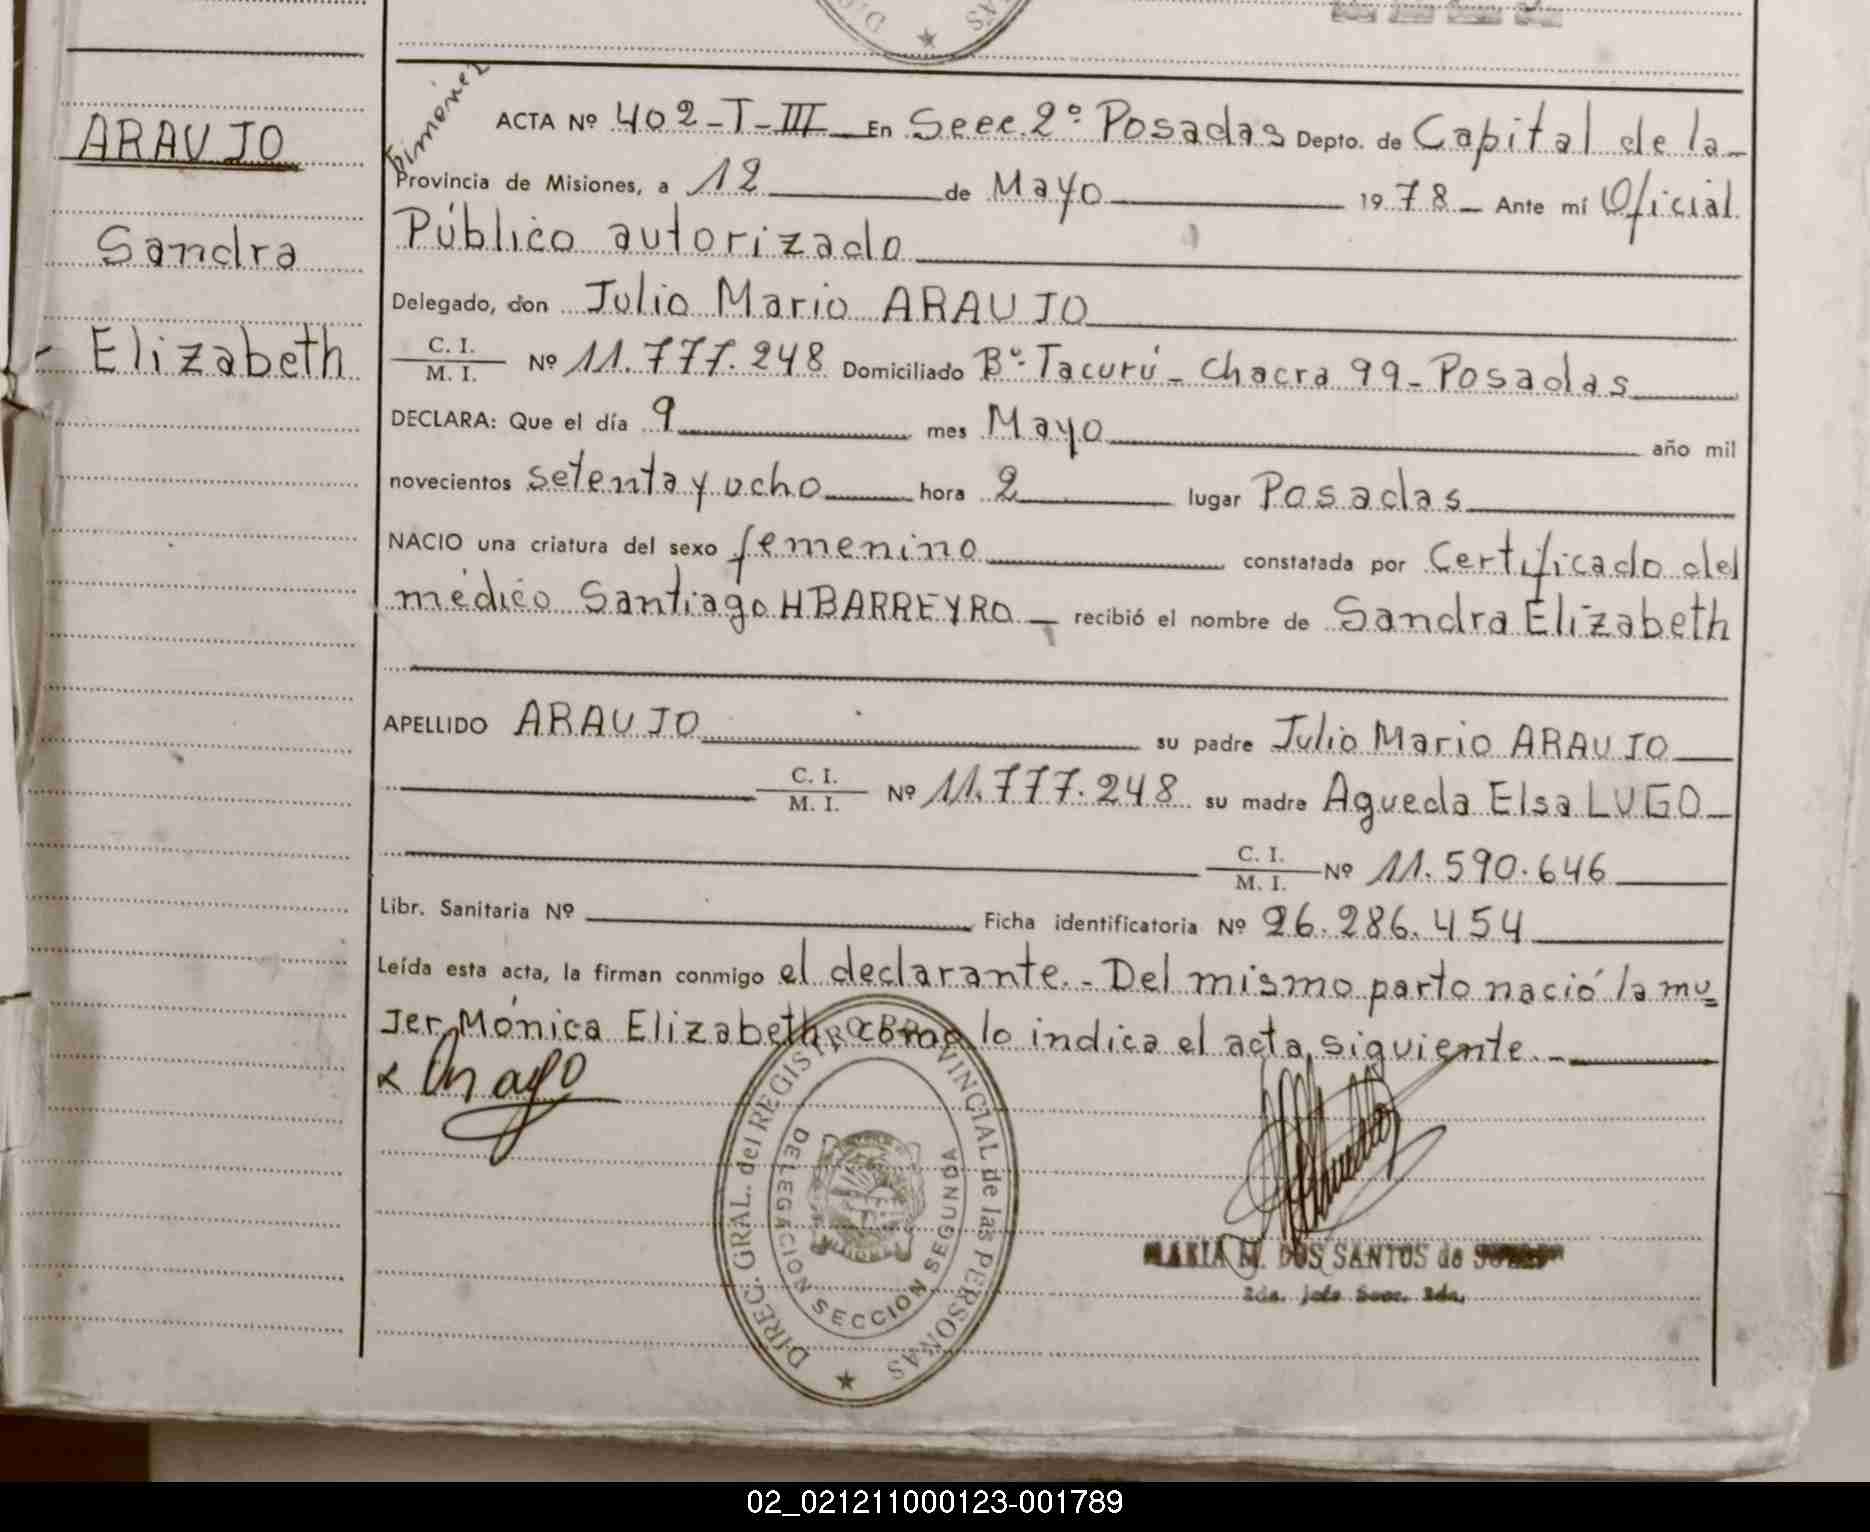 ARAUJO
Sandra
Elizabeth
ACTA Nº 402-T-III En Secc. 2º Posadas Depto. de Capital de la
Provincia de Misiones, a 12 de Mayo 1978 Ante mí Oficial
Público autorizado
Delegado, don Julio Mario ARAUJO
C. I.
M. I. Nº 11.777.248 Domiciliado Bº Tacurú - Chacra 99 - Posadas
DECLARA: Que el día 9 mes Mayo año mil
novecientos setenta y ocho hora 2 lugar Posadas
NACIO una criatura del sexo femenino constatada por Certificado del
médico Santiago H BARREYRO recibió el nombre de Sandra Elizabeth
APELLIDO ARAUJO su padre Julio Mario ARAUJO
C. I.
M. I. Nº 11.777.248 su madre Agueda Elsa LUGO
C. I.
M. I. Nº 11.590.646
Libr. Sanitaria Nº Ficha identificatoria Nº 26.286.454
Leída esta acta, la firman conmigo el declarante.- Del mismo parto nació la mu=
jer Mónica Elizabeth como lo indica el acta siguiente.-
DIREC. GRAL. del REGISTRO PROVINCIAL de las PERSONAS
DELEGACION SECCION SEGUNDA
MARIA M. DOS SANTOS de
2da. Jefe Secc. 2da.
02_021211000123-001789